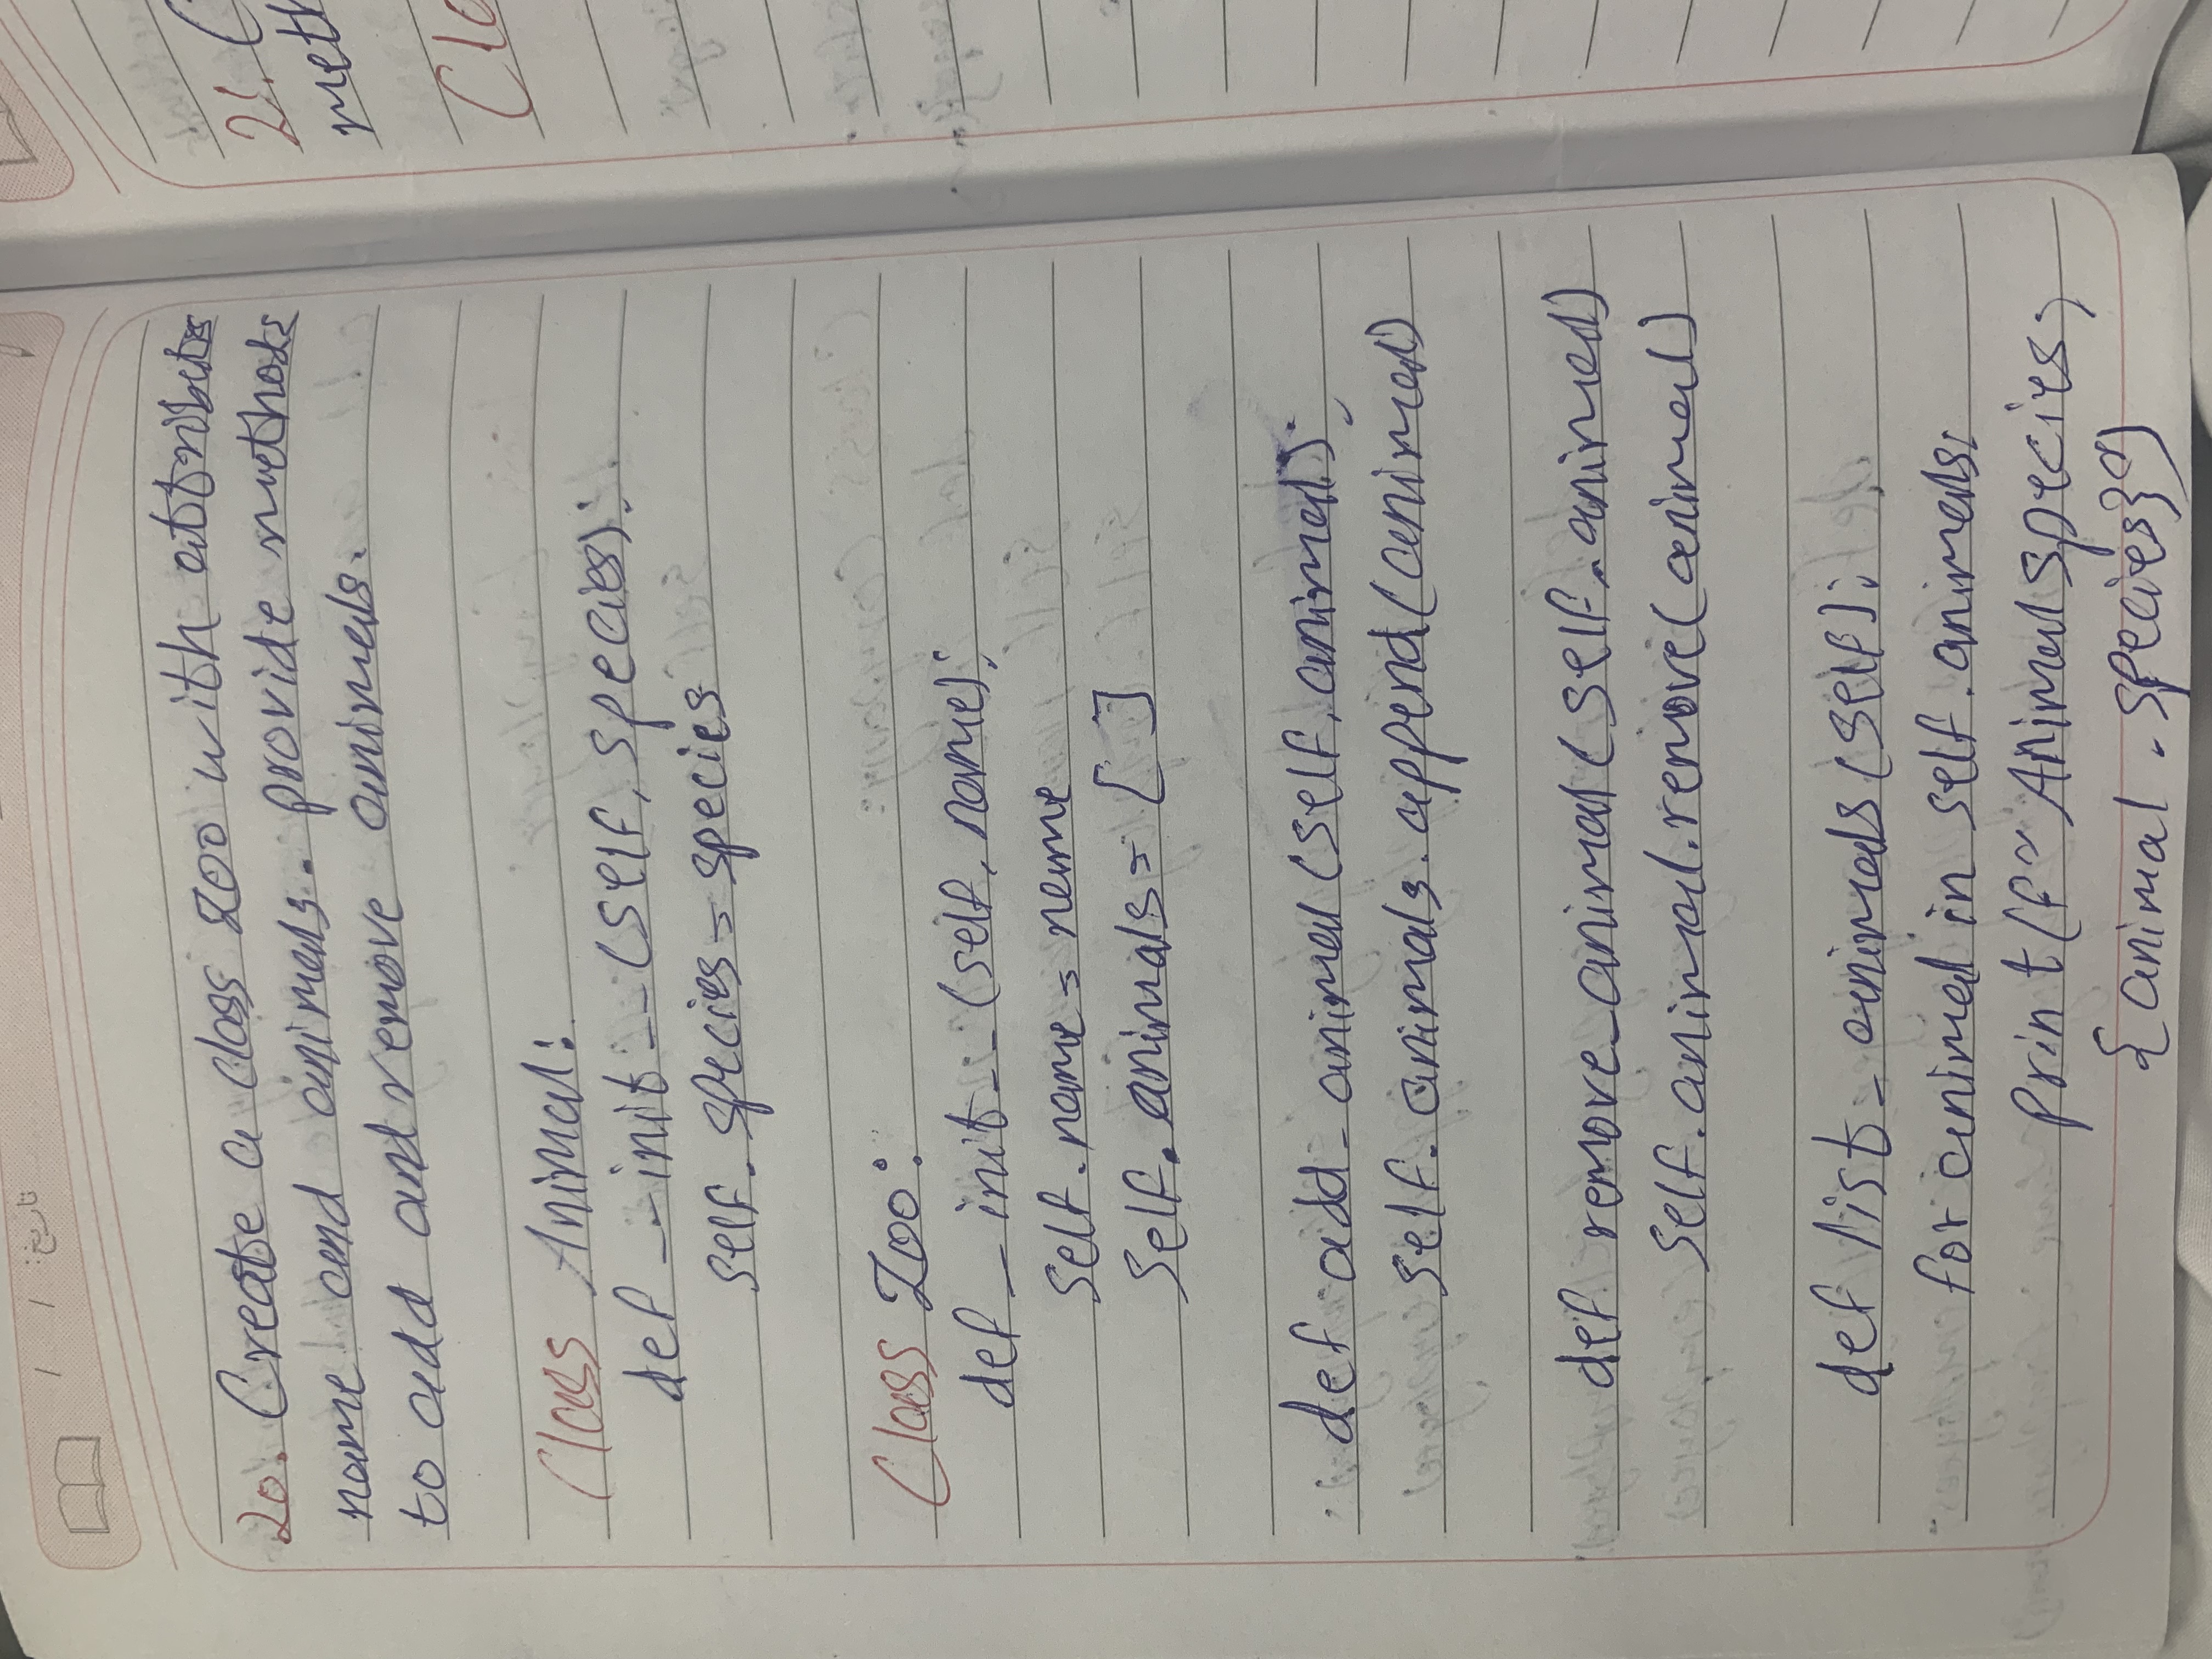 تاریخ: / /
20. Create a class Zoo with attributes
name and animals. provide methods
to add and remove animals.
Class Animal:
def __init__(self, species):
self.species = species
Class Zoo:
def _ init__(self, name):
self.name = name
self.animals = [ ]
def add_animal (self, animal):
self.animals.append(animal)
def remove_animal (self.animal)
self.animal.remove(animal)
def list_animals (self):
for animal in self.animals:
print(f" Animal species;
{animal.species}")
21. C
meth
Cla